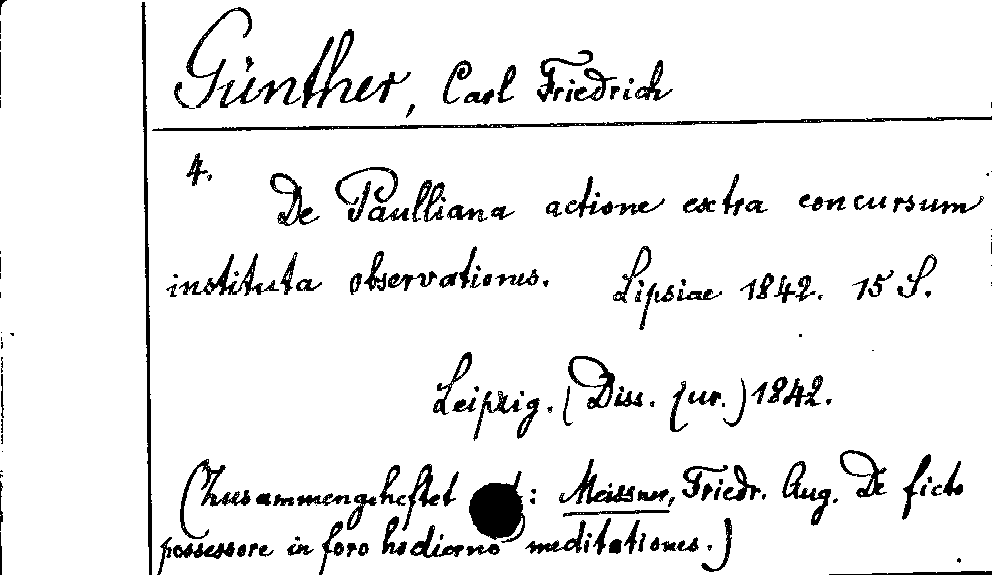 Günther, Carl Friedrich
4.
De Paulliana actione extra concursum
instituta observationes. Lipsiae 1842. 15 S.
Leipzig. (Diss. jur.) 1842.
(Zusammengeheftet : Meissner, Friedr. Aug. De ficto
possessore in foro hodierno meditationes.)